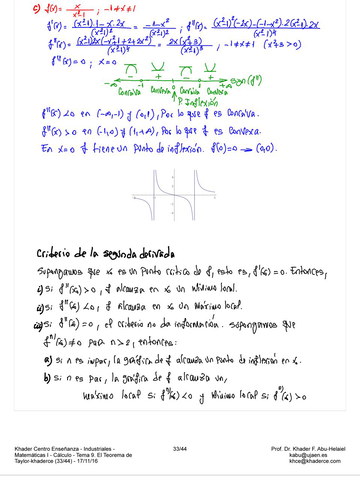 c) f(x) = x/(x²-1), -1≠x≠1
f'(x) = ((x²-1)·1 - x·2x)/(x²-1)² = (-1-x²)/(x²-1)²; f''(x) = ((x²-1)²(-2x) - (-1-x²)·2(x²-1)·2x)/(x²-1)⁴
f''(x) = (x²-1)2x(-x²+1+2+2x²)/(x²-1)⁴ = 2x(x²+3)/(x²-1)³, -1≠x≠1 (x²+3>0)
f''(x)=0; x=0
- + - + sgn(f'')
-1 0 1
Cóncava Convexa Cóncava Convexa
P. Inflexión
f''(x)<0 en (-∞,-1) y (0,1), Por lo que f es cóncava.
f''(x)>0 en (-1,0) y (1,+∞), Por lo que f es convexa.
En x=0 f tiene un punto de inflexión. f(0)=0 → (0,0).
Criterio de la segunda derivada
Supongamos que x₀ es un punto crítico de f, esto es, f'(x₀)=0. Entonces,
i) si f''(x₀)>0, f alcanza en x₀ un mínimo local.
ii) si f''(x₀)<0, f alcanza en x₀ un máximo local.
iii) si f''(x₀)=0, el criterio no da información. Supongamos que
f⁽ⁿ⁾(x₀)≠0 para n>2, entonces:
a) si n es impar, la gráfica de f alcanza un punto de inflexión en x₀.
b) si n es par, la gráfica de f alcanza un,
máximo local si f⁽ⁿ⁾(x₀)<0 y mínimo local si f⁽ⁿ⁾(x₀)>0
Khader Centro Enseñanza - Industriales -
Matemáticas I - Cálculo - Tema 9. El Teorema de
Taylor-khaderce (33/44) - 17/11/16
33/44
Prof. Dr. Khader F. Abu-Helaiel
kabu@ujaen.es
khce@khaderce.com